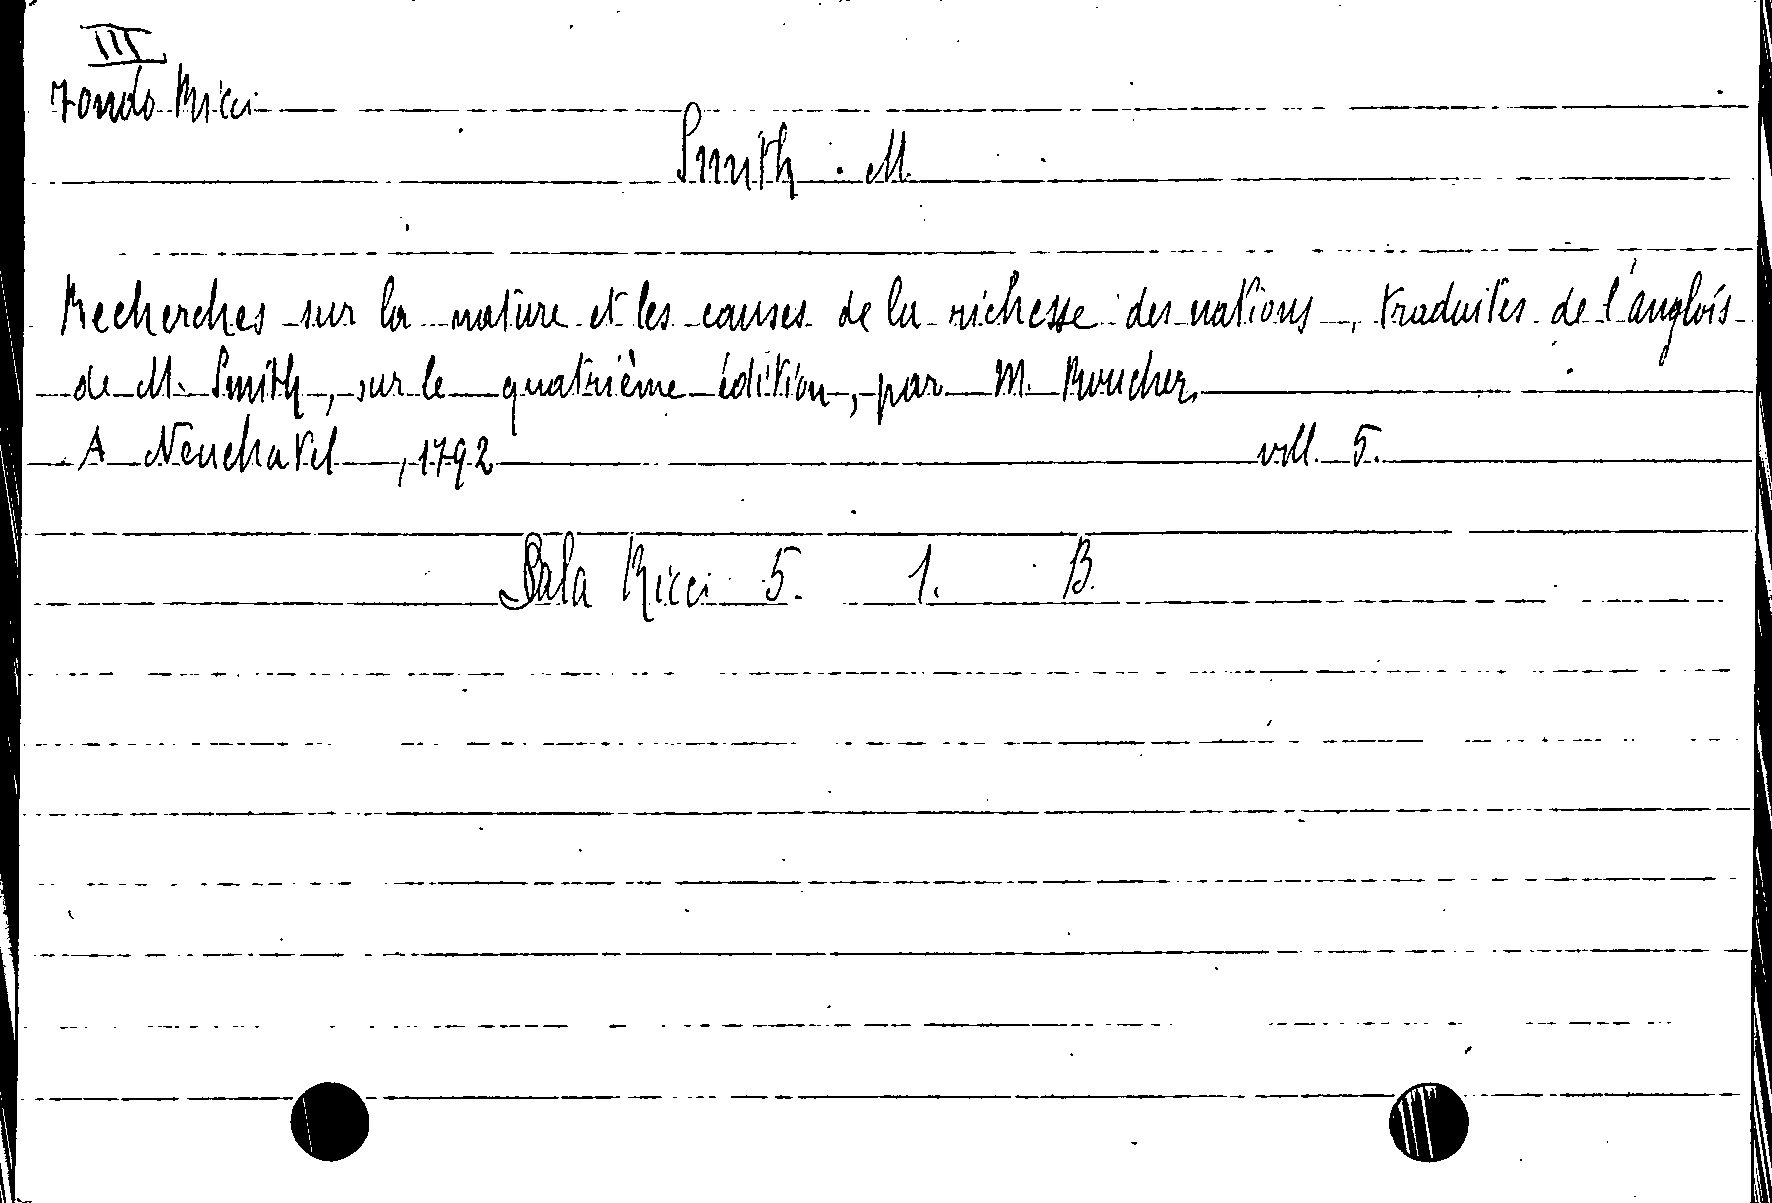 III
Fondo Ricci
Smith . M.
Recherches sur la nature et les causes de la richesse des nations, traduites de l'anglois
de M. Smith, sur le quatrième édition, par M. Roucher.
A Neuchatel, 1792 voll. 5.
Sala Ricci 5. 1. B.